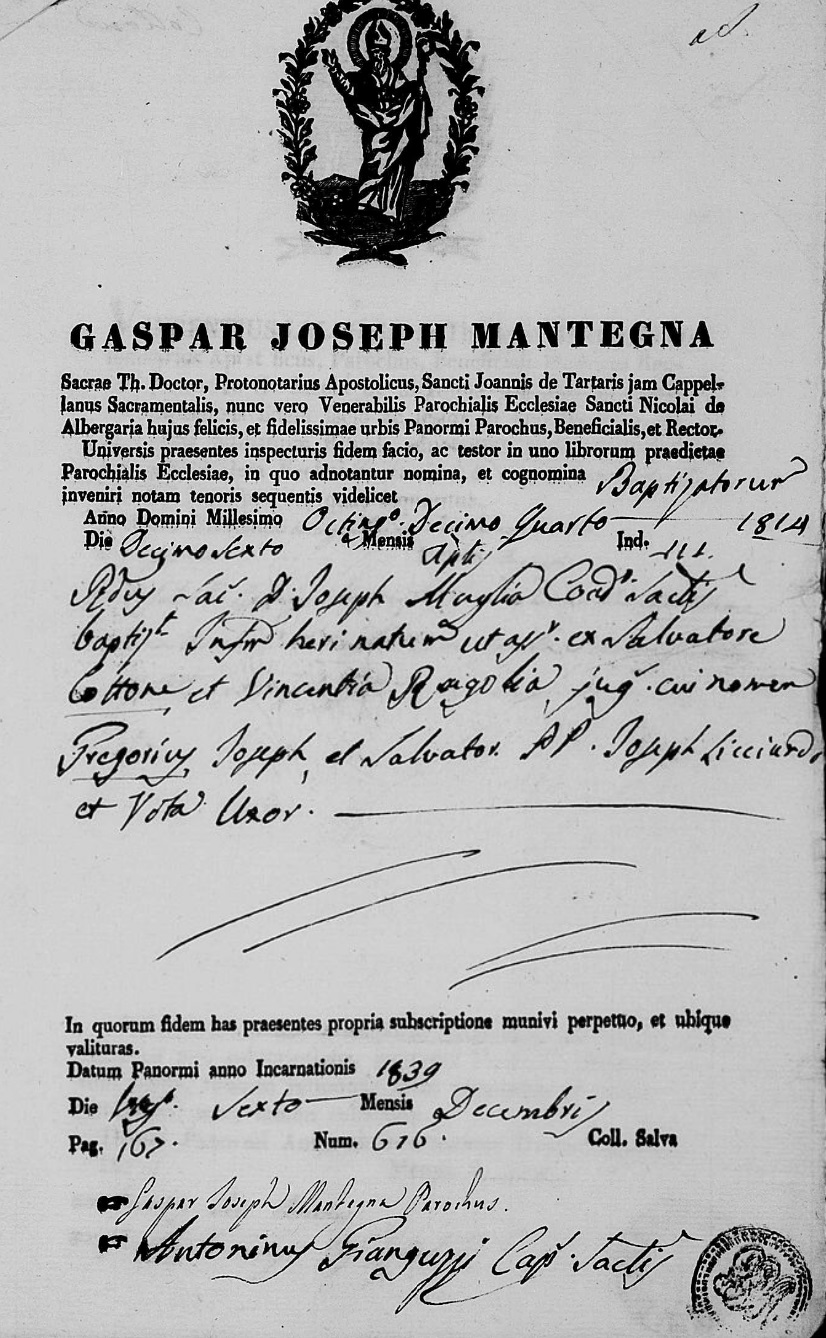 GASPAR JOSEPH MANTEGNA
Sacrae Th. Doctor, Protonotarius Apostolicus, Sancti Joannis de Tartaris jam Cappel-
lanus Sacramentalis, nunc vero Venerabilis Parochialis Ecclesiae Sancti Nicolai de
Albergaria hujus felicis, et fidelissimae urbis Panormi Parochus, Beneficialis, et Rector.
Universis praesentes inspecturis fidem facio, ac testor in uno librorum praedictae
Parochialis Ecclesiae, in quo adnotantur nomina, et cognomina Baptizatorum
inveniri notam tenoris sequentis videlicet
Anno Domini Millesimo Octing.º Decimo Quarto 1814
Die Decimo Sexto Mensis Aplis Ind.
Sac. D. Joseph Muglia Coad. Sactis
bapt. Inf. heri natum ut ass. ex Salvatore
Cottone et Vincentia Ragolia jug. cui nomen
Gregorius Joseph, et Salvator. PP. Joseph Licciardo
et Vota Uxor.
In quorum fidem has praesentes propria subscriptione munivi perpetuo, et ubique
valituras.
Datum Panormi anno Incarnationis 1839
Die Sexto Mensis Decembris
Pag. 167. Num. 616. Coll. Salva
Gaspar Joseph Mantegna Parochus.
Antoninus Gianguzzi Cap. Sactis